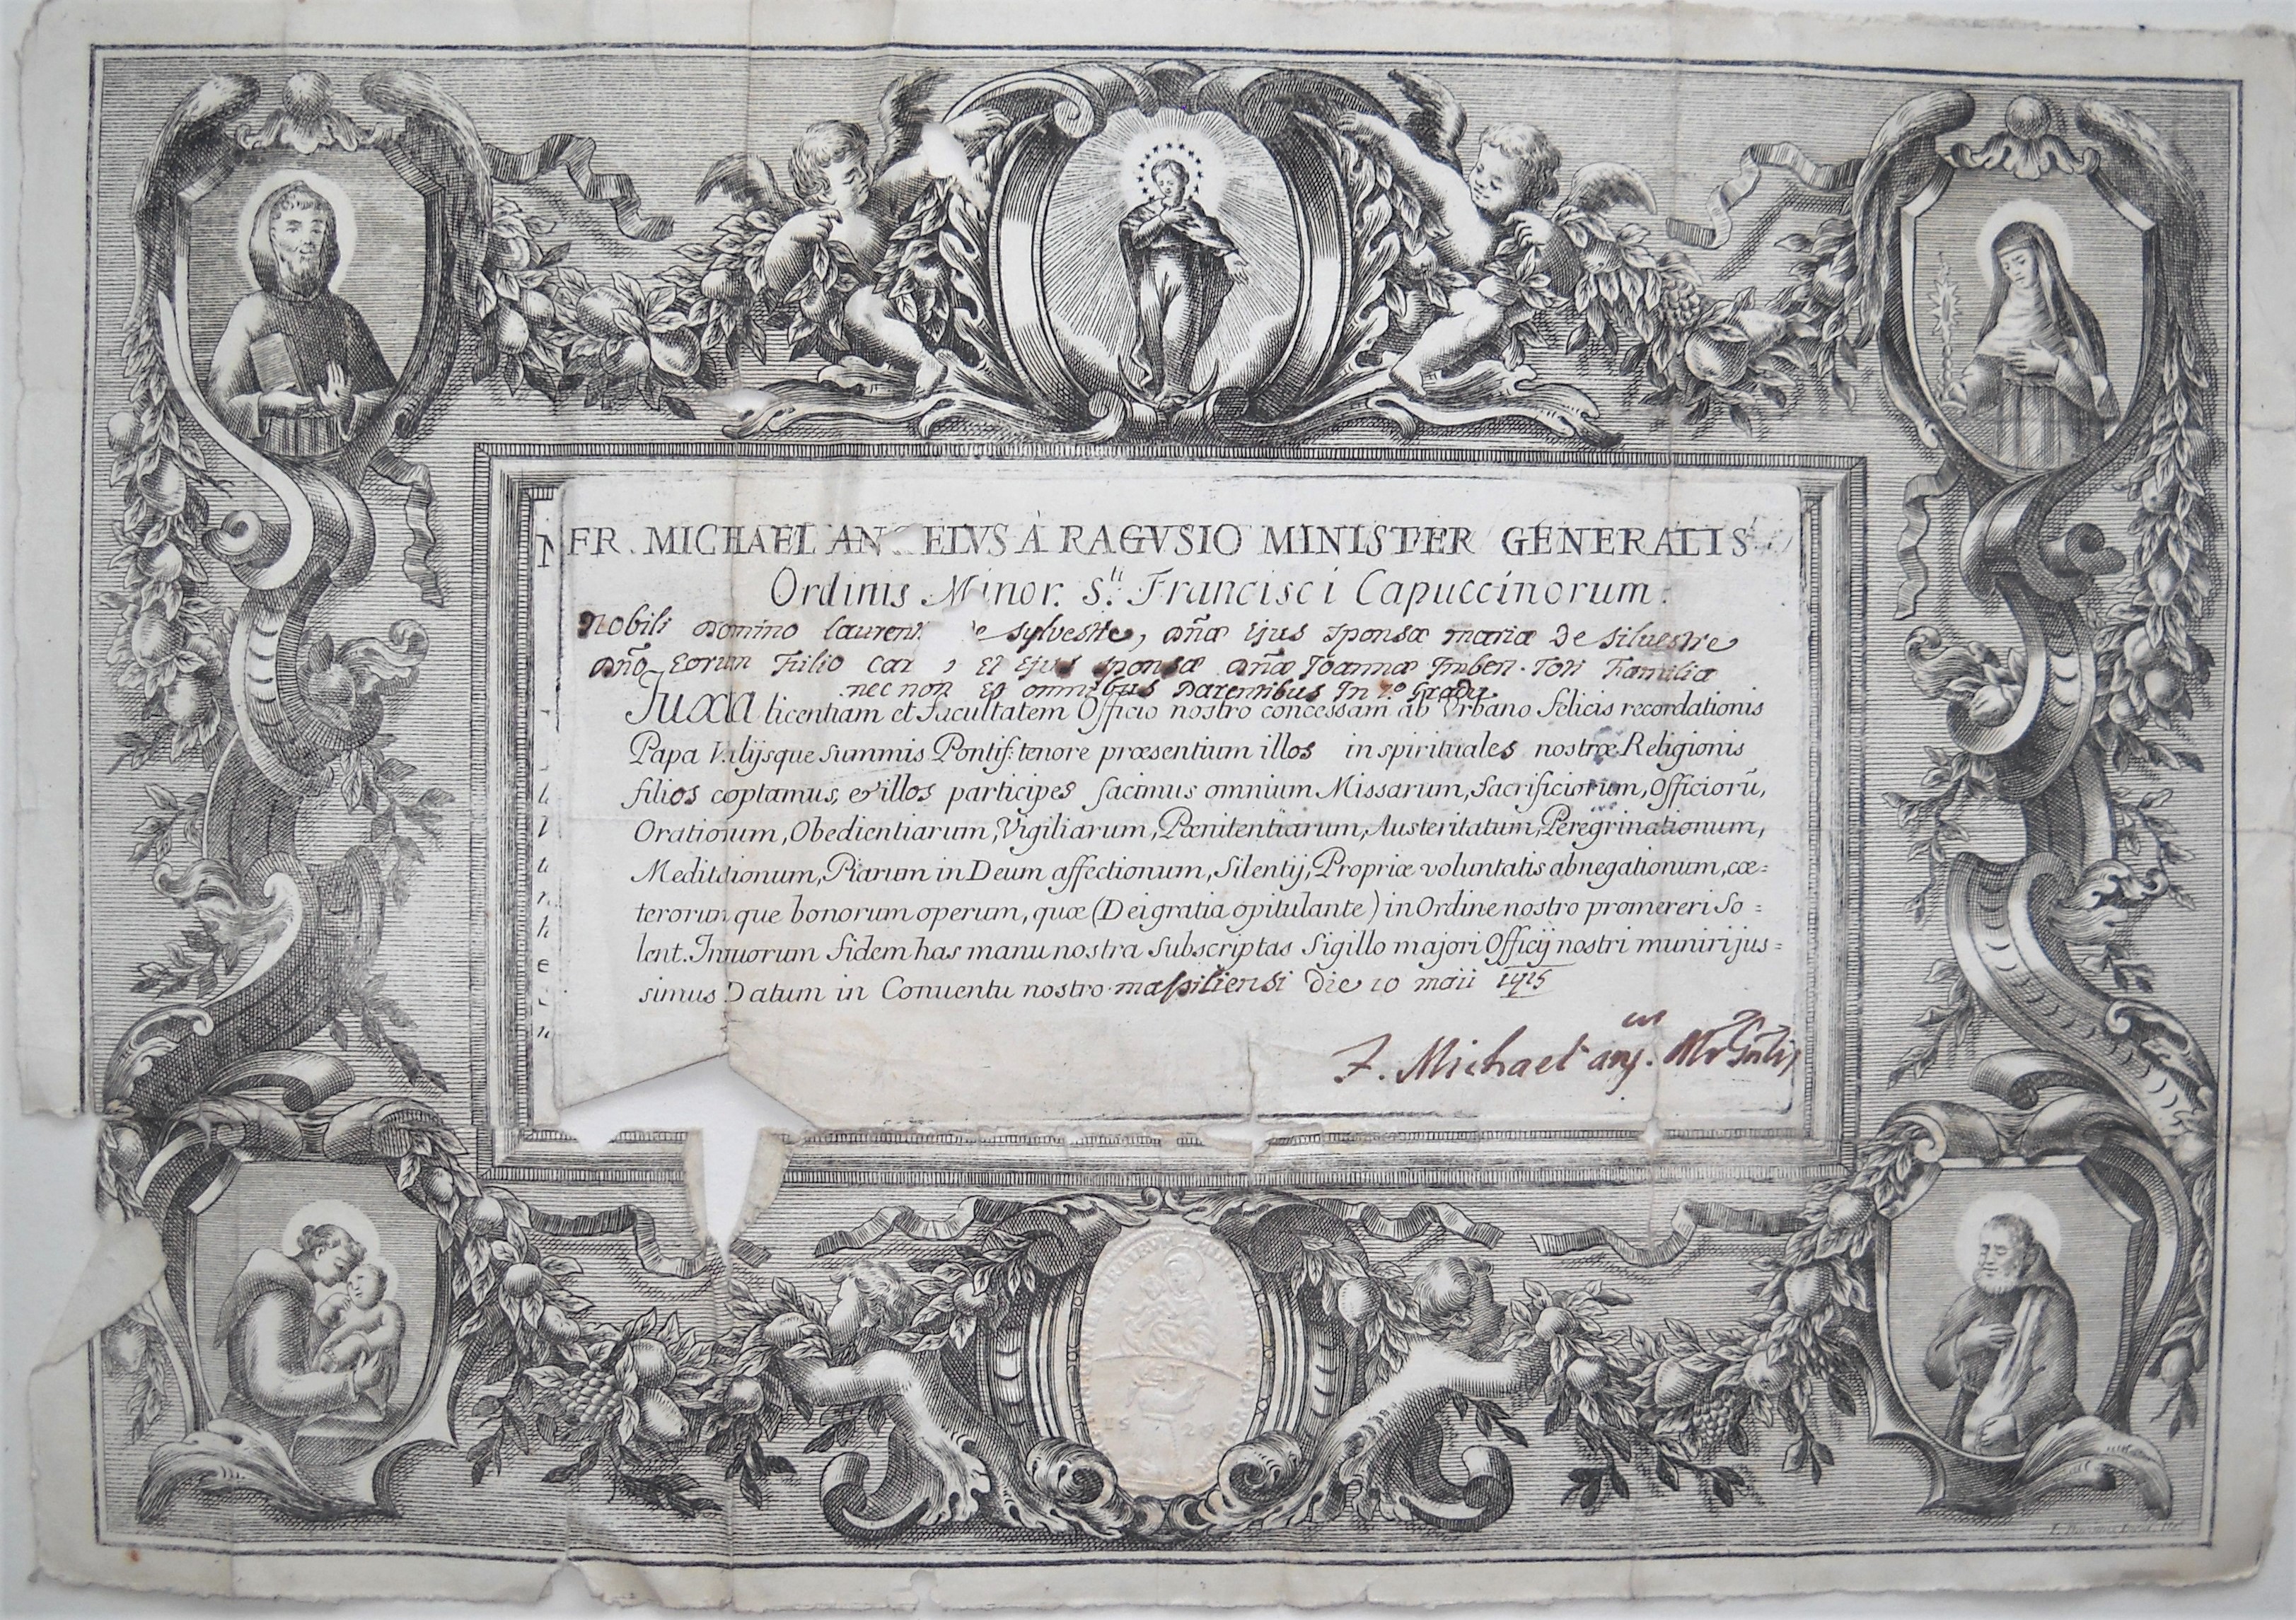 FR. MICHAEL AN ELVS À RAGVSIO MINISTER GENERALIS
Ordinis Minor. S.ti Francisci Capuccinorum.
Nobili Domino Laurent de sylvestre, Dñæ Ejus sponsæ mariæ De silvestre
Dño Eorum Filio Car Et Ejus sponsæ Dñæ Joannæ Imbert. Toti Familiæ
nec non Et omnibus Parentibus In 1.o Gradu.
Juxta licentiam et Facultatem Officio nostro concessam ab Urbano felicis recordationis
Papa V. alijsque Summis Pontif: tenore præsentium illos in spirituales nostræ Religionis
filios coptamus, et illos participes facimus omnium Missarum, Sacrificiorum, Officiorũ,
Orationum, Obedientiarum, Vigiliarum, Pœnitentiarum, Austeritatum, Peregrinationum,
Meditationum, Piarum in Deum affectionum, Silentij, Propriæ voluntatis abnegationum, cæ=
terorum que bonorum operum, quæ (Dei gratia opitulante) in Ordine nostro promereri So=
lent. In quorum fidem has manu nostra Subscriptas Sigillo majori Officij nostri muniri jus=
simus Datum in Conventu nostro massiliensi Die 10 maii
F. Michael ang. Mr Gnlis